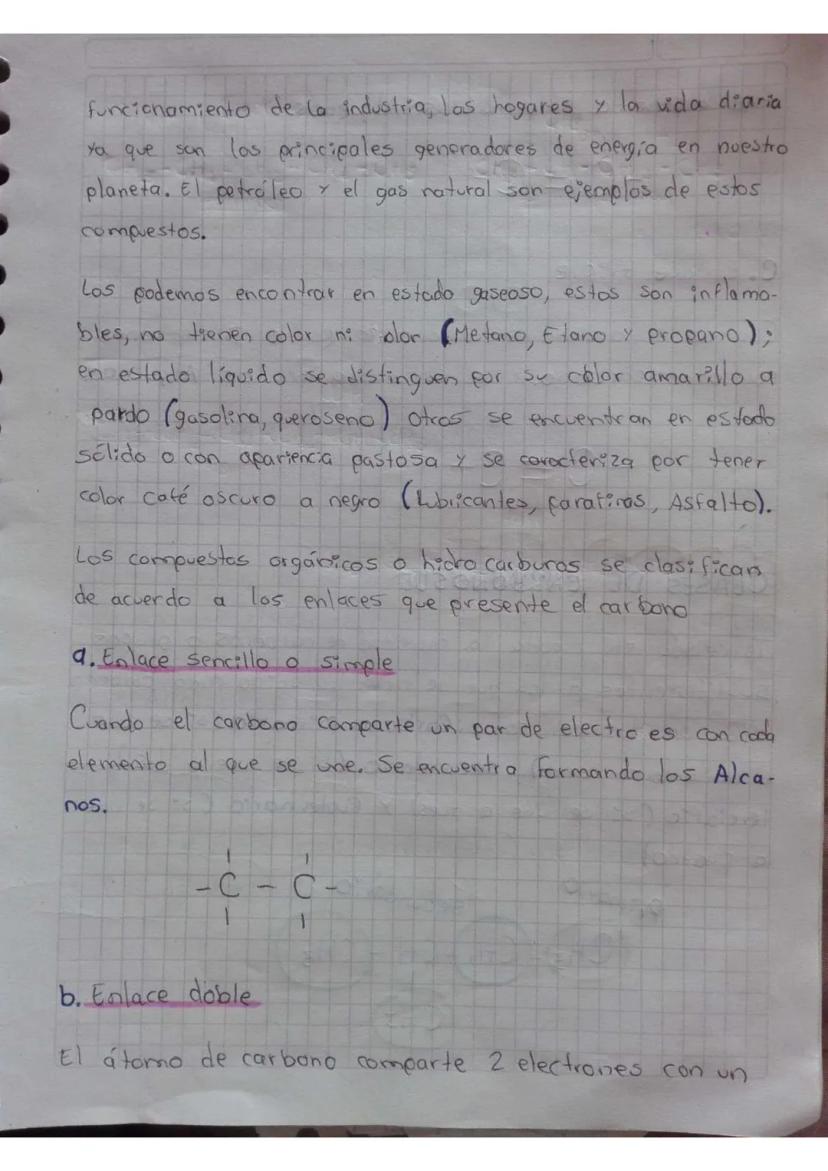 funcionamiento de la industria, los hogares y la vida diaria
ya que son los principales generadores de energía en nuestro
planeta. El petróleo y el gas natural son ejemplos de estos
compuestos.
Los podemos encontrar en estado gaseoso, estos son inflama-
bles, no tienen color ni olor (Metano, Etano y propano);
en estado líquido se distinguen por su color amarillo a
pardo (gasolina, queroseno) otros se encuentran en estado
sólido o con apariencia pastosa y se caracteriza por tener
color café oscuro a negro (Lubricantes, parafinas, Asfalto).
Los compuestos orgánicos o hidrocarburos se clasifican
de acuerdo a los enlaces que presente el carbono
a. Enlace sencillo o simple
Cuando el carbono comparte un par de electro es con cada
elemento al que se une. Se encuentra formando los Alca-
nos.
- C - C -
b. Enlace doble
El átomo de carbono comparte 2 electrones con un